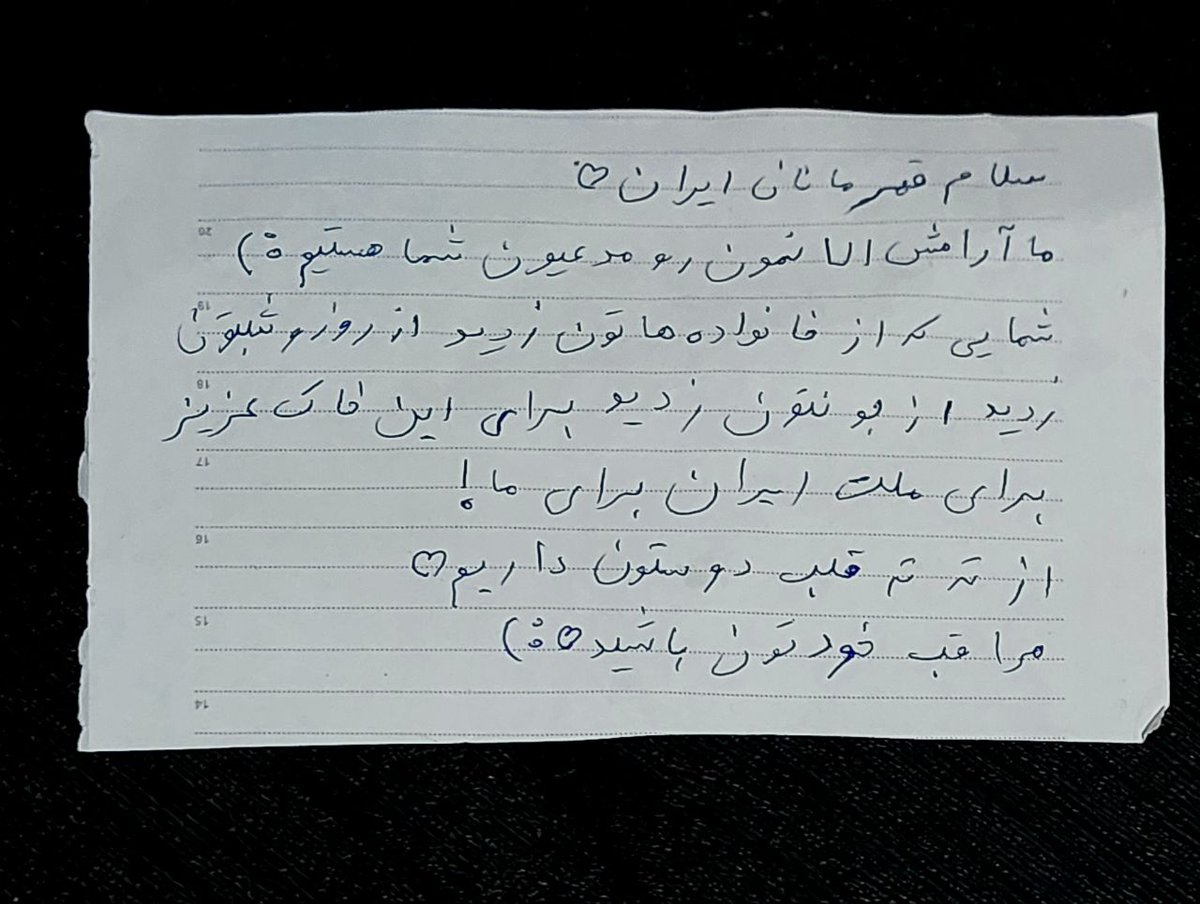 سلام قهرمانان ایران♡
ما آرامش الانمون رو مدعیون شما هستیم :)
شمایی که از خانواده هاتون زدید از روز و شبتون
زدید از جونتون زدید برای این خاک عزیز
برای ملت ایران برای ما!
از ته ته قلب دوستون داریم♡
مراقب خودتون باشید♡:)
20
19
18
17
16
15
14